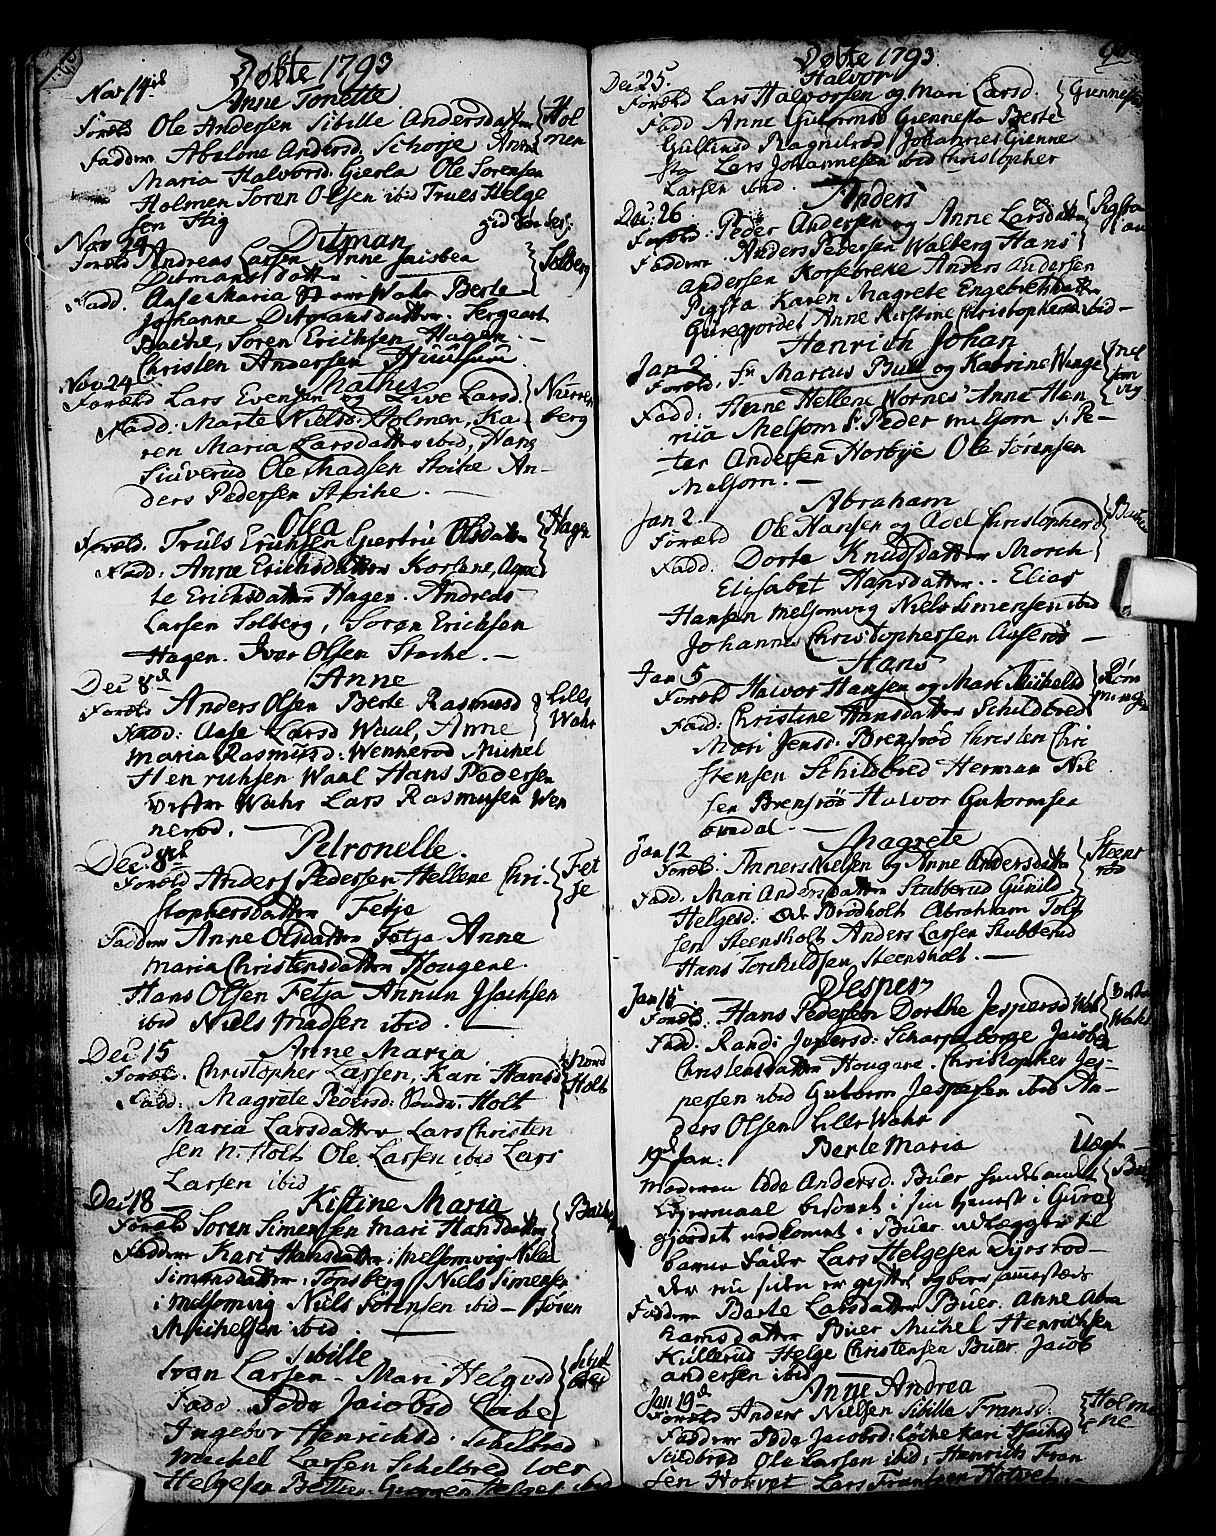 Døbte 1793
Nov 14d
Anne Tonette
Foræld Ole Andersen Sibille Andersdatter Holmen
Faddere Abelone Andersd. Schorje Anne
Maria Halvorsd. Gierla Ole Sørensen
Holmen Søren Olsen ibid Truls Helge
sen Hig
Nov 24 Ditman
Foræld Andreas Larsen, Anne Jaisbea Solberg
Ditmansdatter
Fadd. Aase Maria Wahr Berte
Johanne Ditmansdatter. Sergeant
Bache, Søren Erichsen Hagen. —
Christen Andersen Huusum
Nov 24 Mathis
Foræld Lars Evensen og Live Larsd. Nurrenberg
Fadd. Marte Nielsd. Holmen, Ka
ren Maria Larsdatter ibid, Hans
Siuverud Ole Madsen Stoike An-
ders Pedersen Stoike. —
Olea
Foræld. Truls Erichsen Giertru Olsdatter Hagen
Fadd: Anne Erichsdatter Korsene, Agna
te Erichsdatter Hagen. Andreas
Larsen Solberg, Sørøn Erichsen
Hagen. Ivar Olsen Stoche. —
Dec 8d Anne
Foræld Anders Olsen Berte Rasmusd Lille Wahr
Fadd: Aase Larsd Waal, Anne
Maria Rasmusd: Wennerod Michel
Henrichsen Waal Hans Pedersen
Vestre Wahr Lars Rasmusen Wen
nerod. —
Dec. 8d Petronelle.
Foræld Anders Pedersen Hellene Chri- Fetje
stophersdatter Fetje
Faddere Anne Olsdatter Fetja Anne
Maria Christensdatter Hougene.
Hans Olsen Fetja Annun Isachsen
ibid Niels Madsen ibid. —
Dec 15 Anne Maria
Foræld. Christopher Larsen, Kari Hansd Nord Holt
Fadd: Magrete Pedersd: Holt
Maria Larsdatter Lars Christen
sen N. Holt Ole Larsen ibid Lars
Larsen ibid
Dec 18 Kistine Maria
Foræld Søren Simensen Mari Hansdatter Bache
Faddere Kari Hansdatter i Melsomvig Nille
Simensdatter: Tønsberg Niels Simensen
i Melsomvig Niels Sørensen ibid — Søren
Michelsen ibid —
Sibille
Ivar Larsen — Mari Helgesd
Fadd. Idde Jacobsd
Ingebor Henrichsd. Schelbred
Michel Larsen Schelbred Iver
Helgesen
Døbte 1793
Dec 25. Halvor
Foræld Lars Halvorsen og Mari Larsd. Giennestad
Fadd Anne Gutormsd Giennesta Berte
Gullimsd Johannes Gienne
sta Lars Johannesen ibid Christopher
Larsen ibid.
Dec: 26 Anders
Foræld: Peder Andersen og Anne Larsdatter
Faddere. Anders Pedersen Walberg Hans
Andersen Korsebreke Anders Andersen
Pigsta Karen Magrete Engebretsdatter
Guregjordet Anne Kirstine Christophersd ibid —
Jan 2 Henrich Johan
Foræld, Sr Marcus Bull og Katrine Winge Melsomvig
Fadd: Hanne Hellene Wornes Anne Hen
rica Melsom S. Peder Melsom S. Pe-
ter Andersen Horbye Ole Sørensen
Melsom. —
Jan 2 Abraham
Foræld Ole Hansen og Adel Christophersd
Fadd. Dorte Knudsdatter Morch
Elisabet Hansdatter. Elias
Hansen Melsomvig Niels Simensen ibid
Johannes Christophersen Aaserød —
Jan 5 Hans
Foræld Halvor Hansen og Mari Michelsd Rømmingen
Fadd: Christine Hansdatter Schildbred
Mari Jensd. Brensrod Christen Chri
stensen Schildbred Herman Niel
sen Brensrød Halvor Gutormsen
—
Jan 12 Magrete
Foræld: Anners Nielsen og Anne Andersdatter Steensrød
Fadd. Mari Andersdatter Stubberud Gunild
Helgesd: Brodholt Abraham Tolf
sen Steensholt Anders Larsen Stubberud
Hans Torchildsen Steensholt. —
Jan 15 Jesper
Foræld. Hans Pedersen Dorthe Jespersd Wahr
Fadd. Randi Jespersd: Scharpeborge Jacobea
Christensdatter Hougene. Christopher Jes-
persen ibid Gutorm Jespersen ibid An-
ders Olsen Lille Wahr
19d Jan: Berte Maria Uægt
Moderen Idde Andersd. Buer hendes andet Buer
Leiermaal besovet i sin tjeneste i Gure
gjordet nedkomet i Buer udlægger til
barne Fader Lars Helgesen Dyrsrød
der nu siden er gyft og boer sammesteds
Faddere Berte Larsdatter Buer. Anne Abra
hamsdatter Buer Michel Henrichsen
Kullerud Helge Christensen Buer Jacob
andersen ibid
Jan 19d Anne Andrea
Foræld Anders Nielsen Sibille Fransd. Holmene
Faddere Idde Jacobsd: Kari
Scildbrød Ole Larsen ibid, Henrich Fran
sen Holtvet Lars Frantsen Holtvet